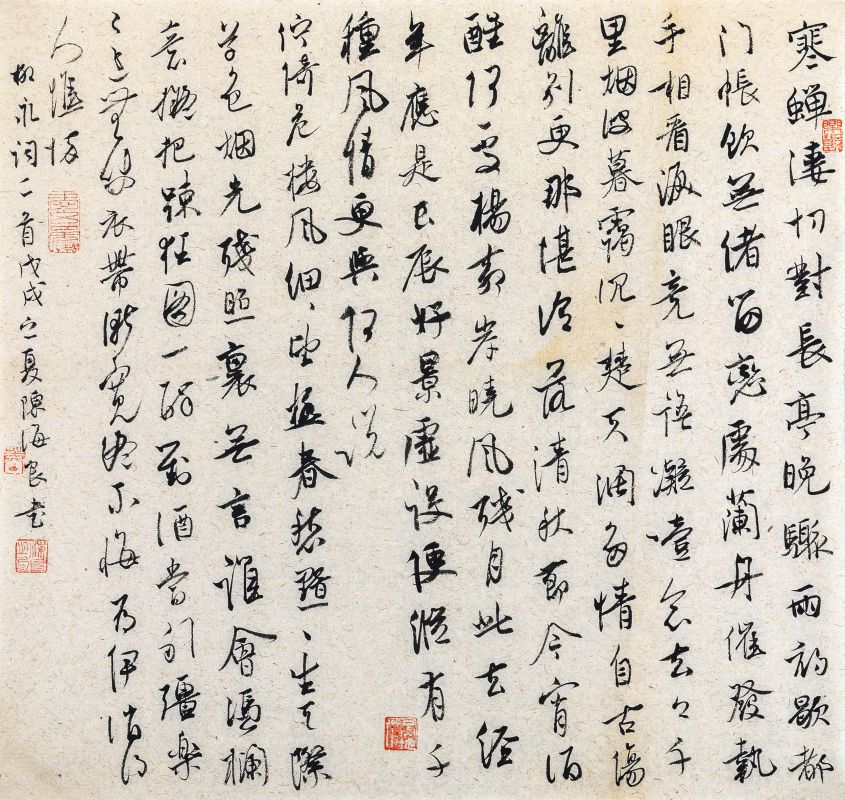 寒蟬淒切對長亭晚驟雨初歇都
门帳飲無緒留戀處蘭舟催發執
手相看淚眼竟無語凝噎念去々千
里烟波暮靄沉、楚天闊多情自古傷
離別更那堪冷落清秋節今宵酒
醒何處楊柳岸曉風殘月此去經
年應是良辰好景虛設便縱有千
種風情更與何人說
佇倚危樓風細、望極春愁黯、生天際
草色烟光殘照裏無言誰會憑欄
意擬把疎狂圖一醉對酒當歌彊樂
々還無味衣帶漸寬終不悔為伊消得
人憔悴
柳永词二首戊戌之夏陳海良書